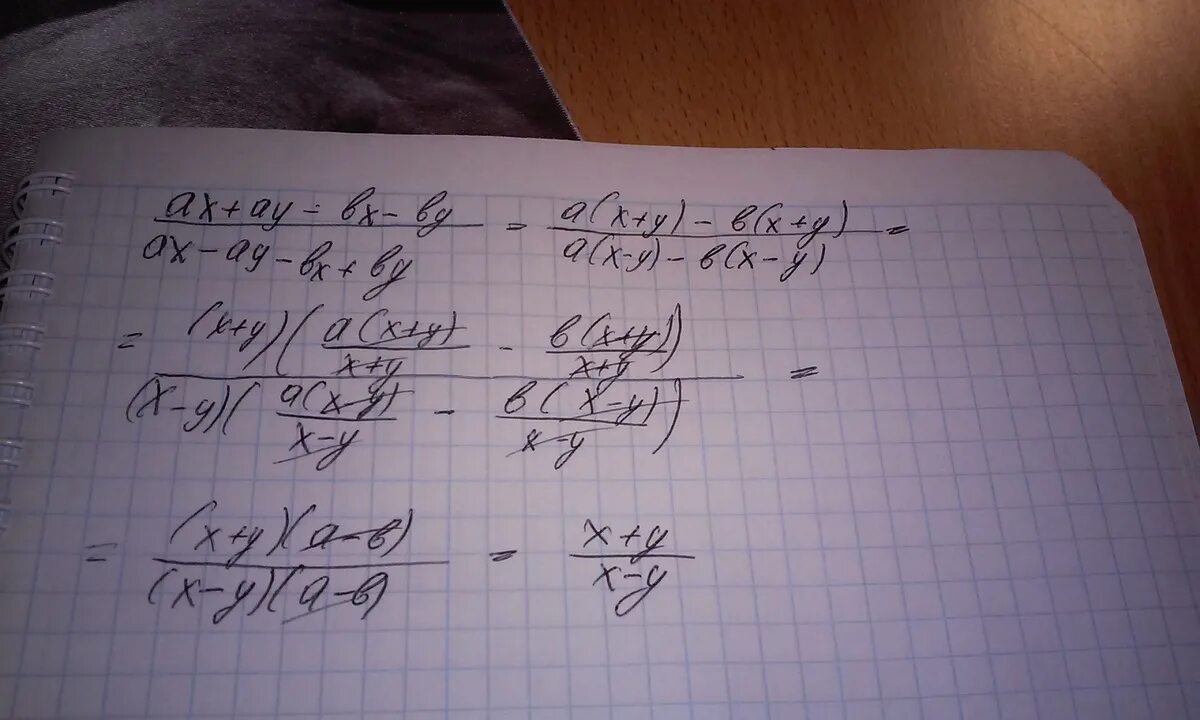 (ax+ay-вx-вy)/(ax-ay-вx+вy) = (a(x+y)-в(x+y))/(a(x-y)-в(x-y)) =
= ((x+y)(a(x+y)/(x+y) - в(x+y)/(x+y)))/((x-y)(a(x-y)/(x-y) - в(x-y)/(x-y))) =
= ((x+y)(a-в))/((x-y)(a-в)) = (x+y)/(x-y)